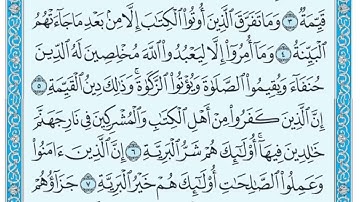 قَيِّمَةٌ ٣ وَمَا تَفَرَّقَ ٱلَّذِينَ أُوتُوا۟ ٱلْكِتَـٰبَ إِلَّا مِنۢ بَعْدِ مَا جَآءَتْهُمُ
ٱلْبَيِّنَةُ ٤ وَمَآ أُمِرُوٓا۟ إِلَّا لِيَعْبُدُوا۟ ٱللَّهَ مُخْلِصِينَ لَهُ ٱلدِّينَ
حُنَفَآءَ وَيُقِيمُوا۟ ٱلصَّلَوٰةَ وَيُؤْتُوا۟ ٱلزَّكَوٰةَ ۚ وَذَٰلِكَ دِينُ ٱلْقَيِّمَةِ ٥
إِنَّ ٱلَّذِينَ كَفَرُوا۟ مِنْ أَهْلِ ٱلْكِتَـٰبِ وَٱلْمُشْرِكِينَ فِى نَارِ جَهَنَّمَ
خَـٰلِدِينَ فِيهَآ ۚ أُو۟لَـٰٓئِكَ هُمْ شَرُّ ٱلْبَرِيَّةِ ٦ إِنَّ ٱلَّذِينَ ءَامَنُوا۟
وَعَمِلُوا۟ ٱلصَّـٰلِحَـٰتِ أُو۟لَـٰٓئِكَ هُمْ خَيْرُ ٱلْبَرِيَّةِ ٧ جَزَآؤُهُمْ